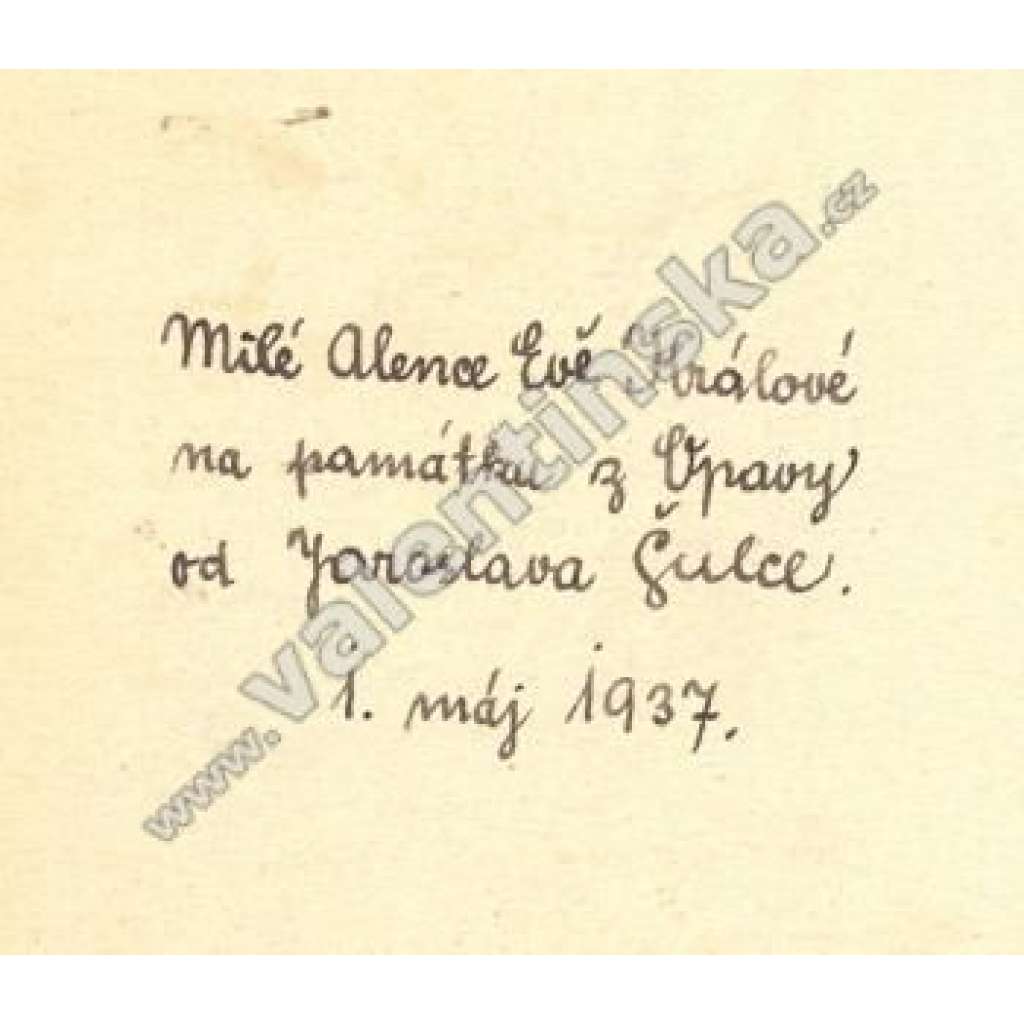 Milé Alence Evě Králové
na památku z Opavy
od Jaroslava Šulce.
1. máj 1937.
www.valentinska.cz